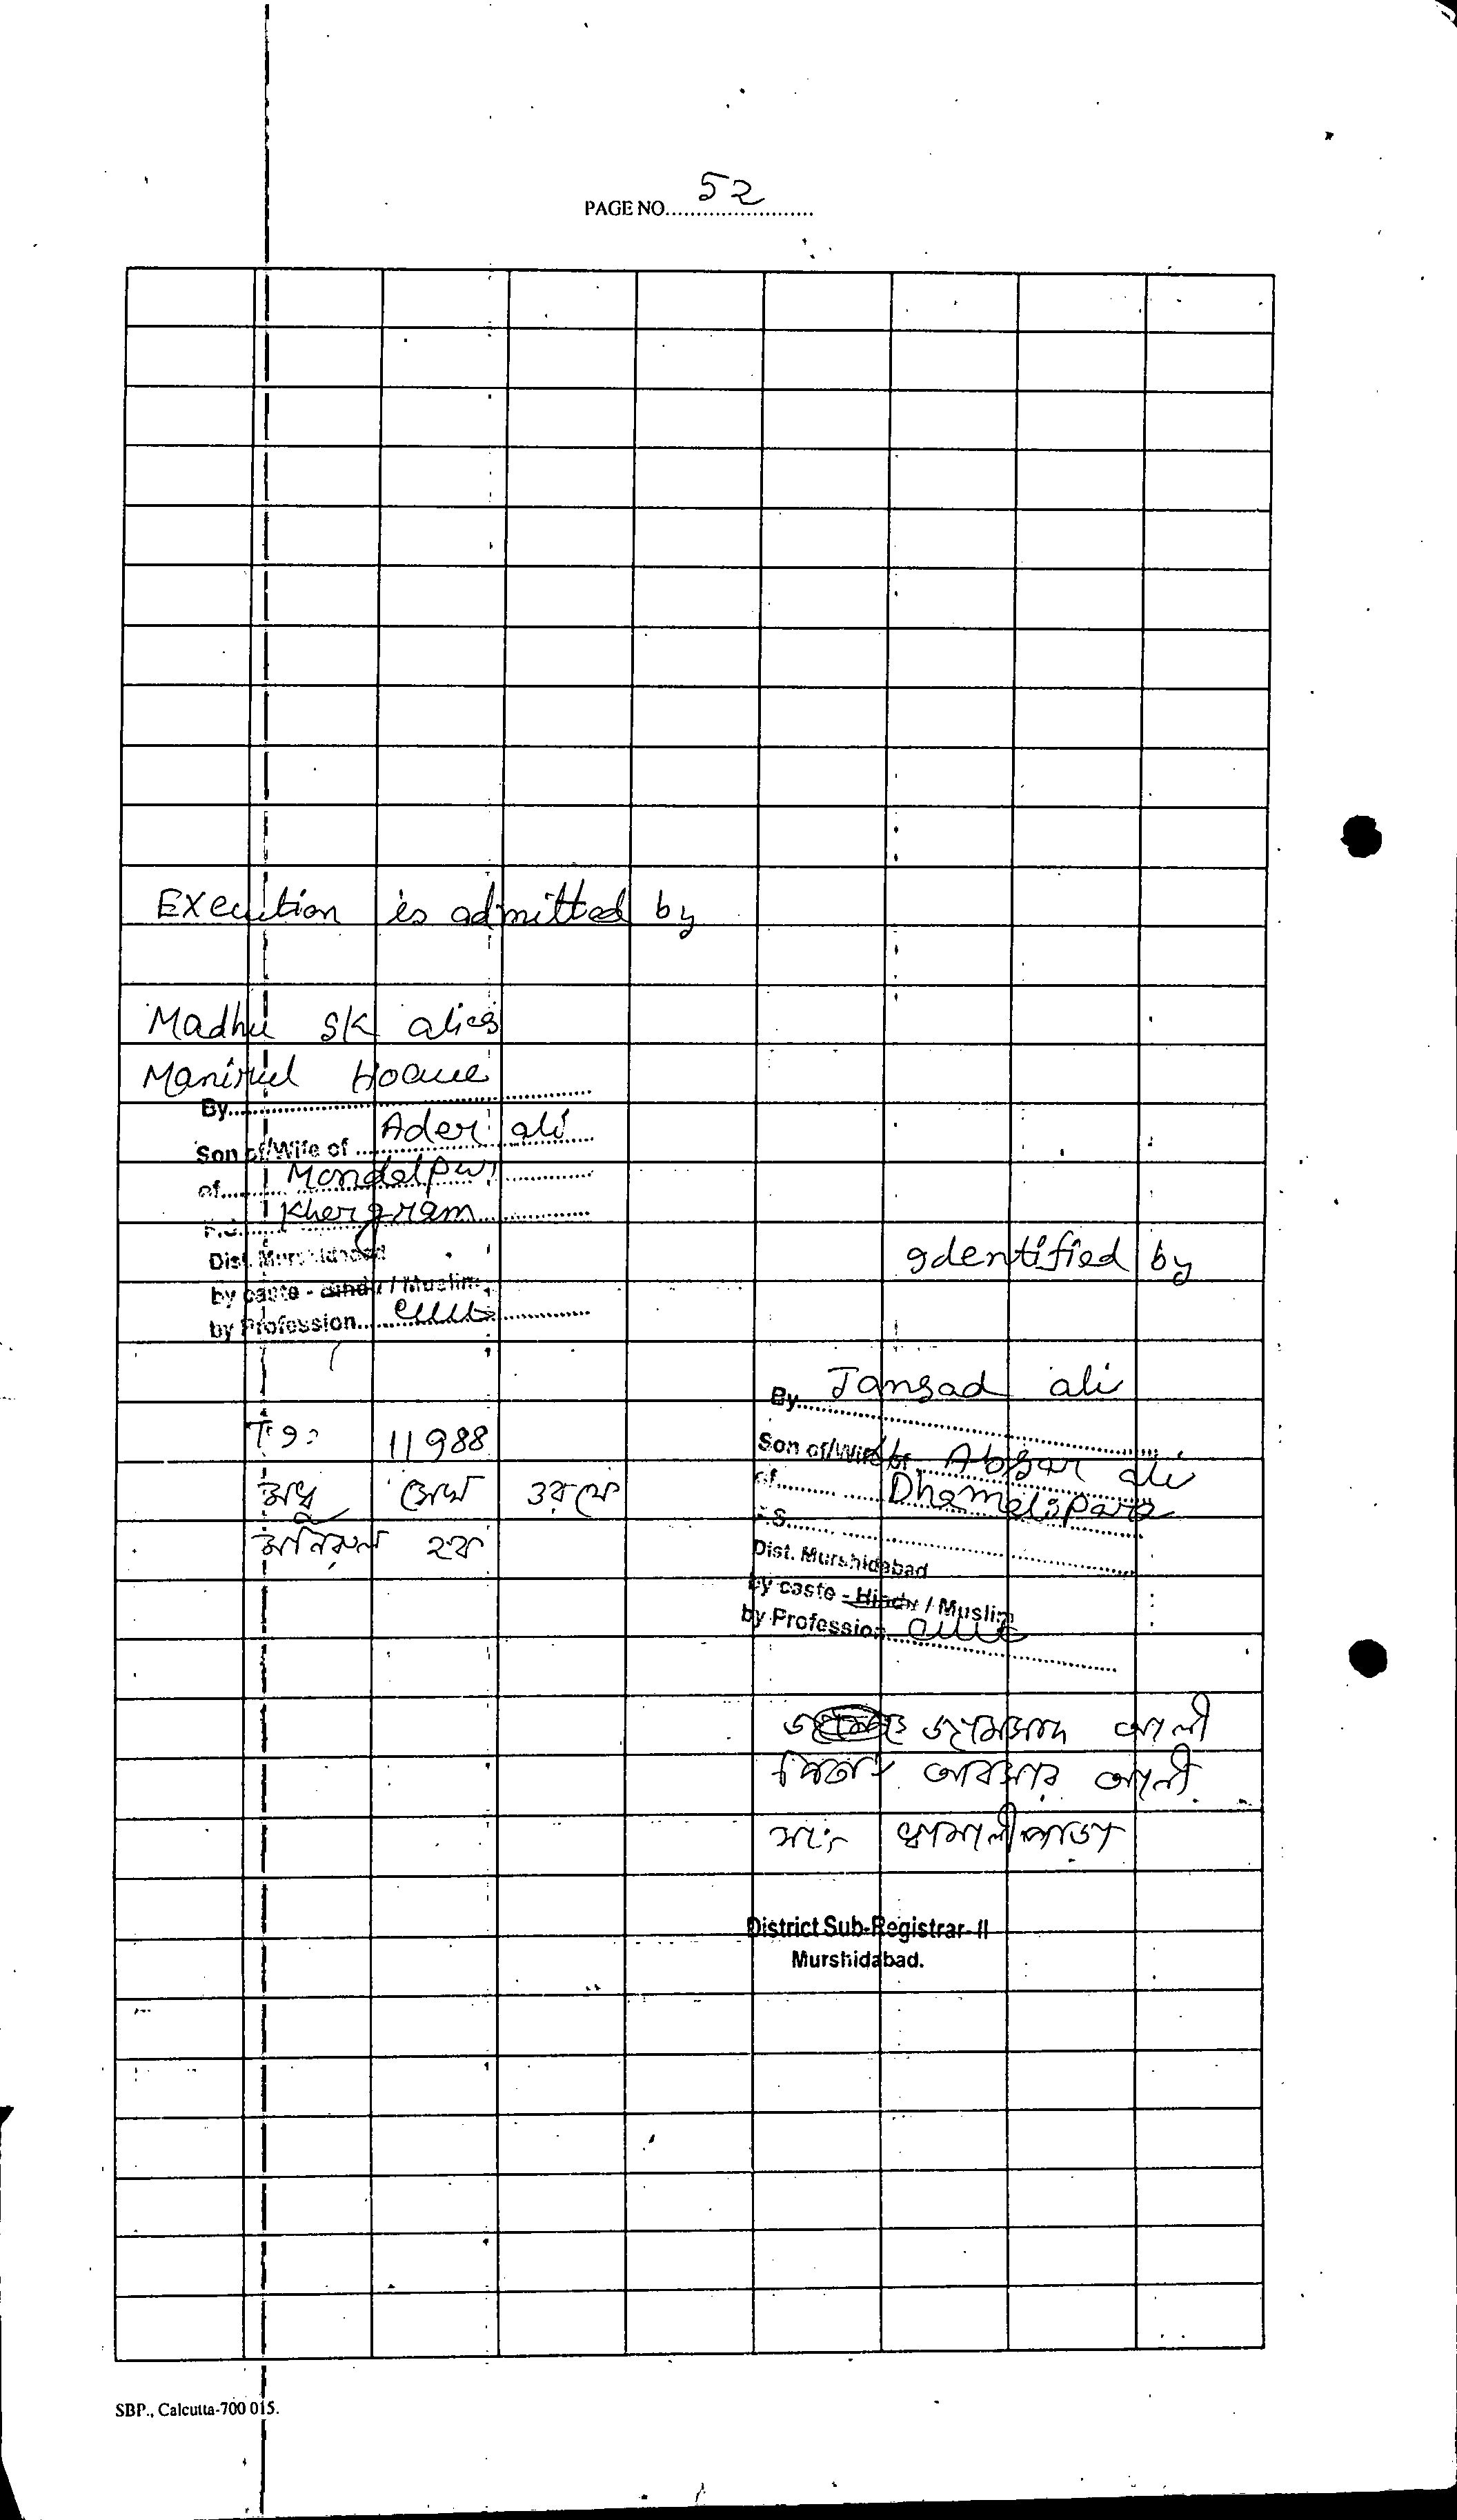 PAGE NO. 52
Execution is admitted by
Madhu SK alias
Manirul Hoque
By
Son of/Wife of Ader ali
of Mondalpur
P.S. Khergram
Dist. Murshidabad
by caste - Hindu / Muslim
by Profession
Identified by
By Jamsad ali
Son of/Wife of Absar ali
of Dhamalipara
P.S.
Dist. Murshidabad
by caste - Hindu / Muslim
by Profession
11988
মধু সেখ ওরফে
মনিরুল হক
জামসাদ আলী
পিতা আবসার আলী
সাং ধামালীপাড়া
District Sub-Registrar-II
Murshidabad.
SBP., Calcutta-700 015.